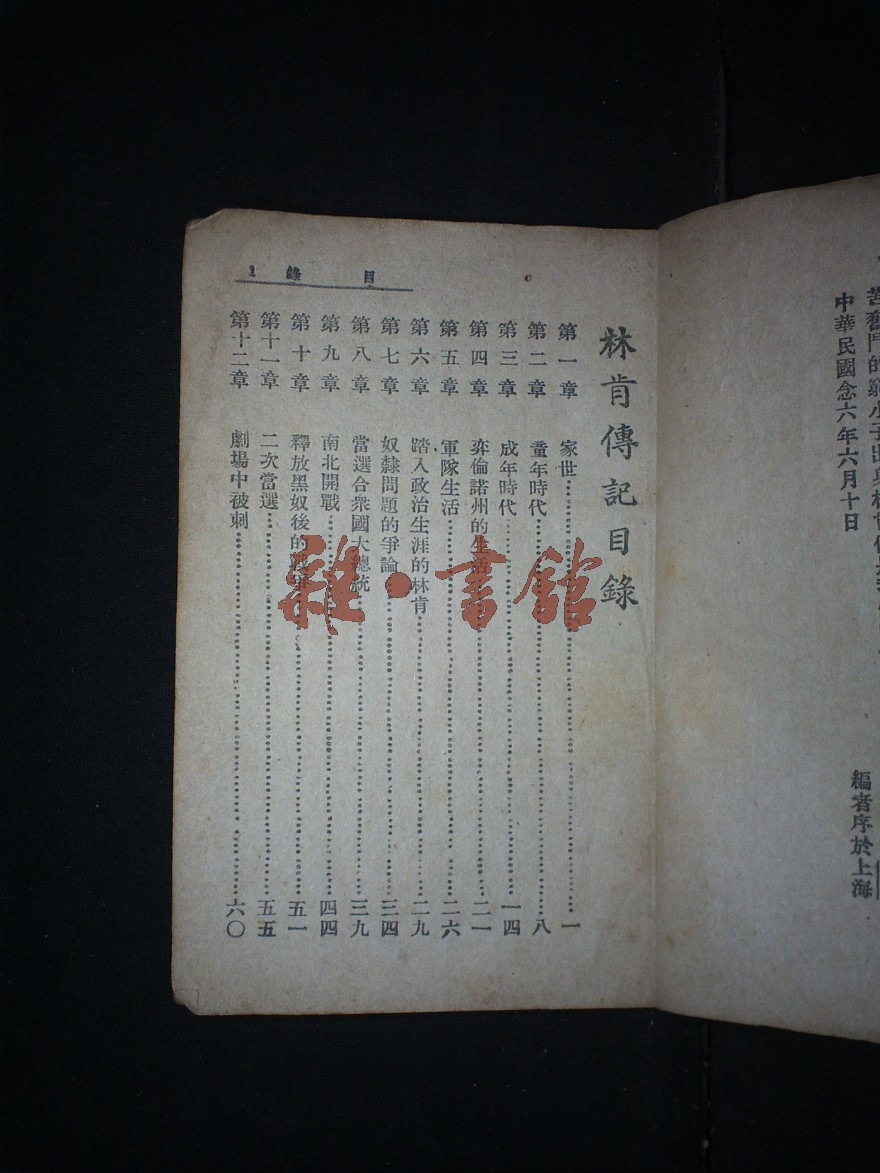 中華民國念六年六月十日
編者序於上海
目錄 1
林肯傳記目錄
第一章 家世……一
第二章 童年時代……八
第三章 成年時代……一四
第四章 弈倫諾州的生活……二一
第五章 軍隊生活……二六
第六章 踏入政治生涯的林肯……二九
第七章 奴隸問題的爭論……三四
第八章 當選合衆國大總統……三九
第九章 南北開戰……四四
第十章 釋放黑奴後的戰爭……五一
第十一章 二次當選……五五
第十二章 劇場中被刺……六〇
雜·書館